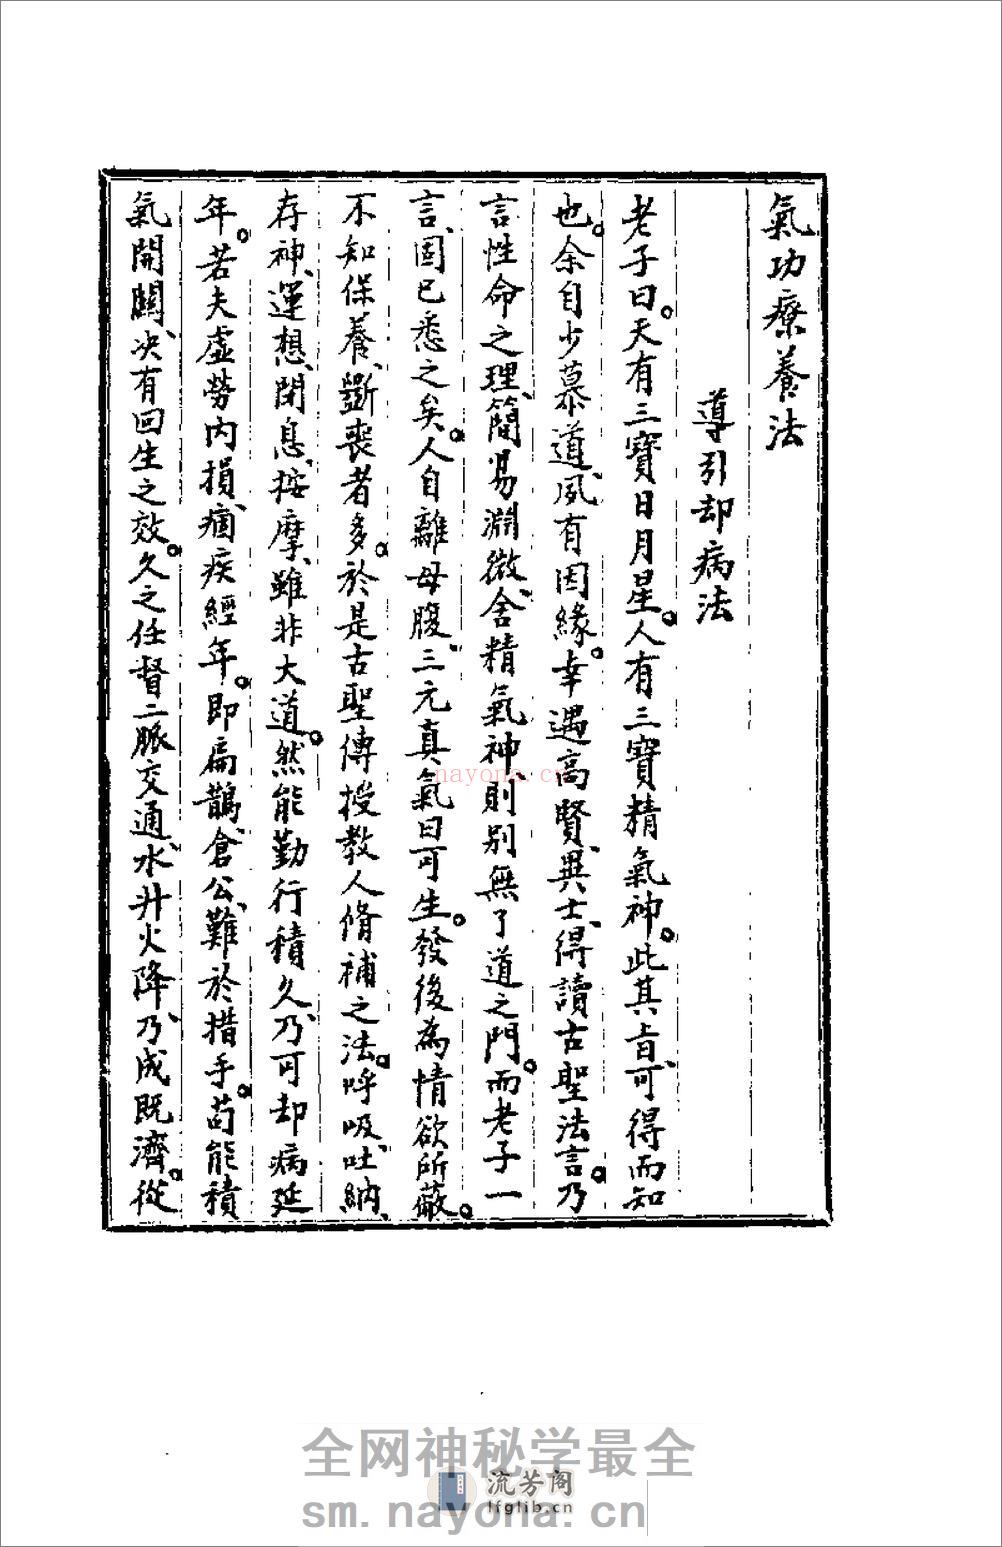 氣功療養法
導引却病法
老子曰。天有三寶日月星。人有三寶精氣神。此其旨、可得而知
也。余自少慕道、夙有因緣。幸遇高賢、異士、得讀古聖法言。乃
言性命之理、簡易淵微、舍精氣神則別無了道之門。而老子一
言、固已悉之矣。人自離母腹、三元真氣日可生。發後為情欲所蔽。
不知保養、斵喪者多。於是古聖傳授教人脩補之法。呼吸、吐納、
存神、運想、閉息、按摩、雖非大道。然能勤行積久、乃可却病延
年。若夫虛勞內損、痼疾經年。即扁鵲、倉公、難於措手。苟能積
氣開關、决有回生之效。久之任督二脈交通、水升火降、乃成既濟。從
nayona.cn
全网神秘学最全
流芳阁
lfglib.cn
sm.nayona.cn